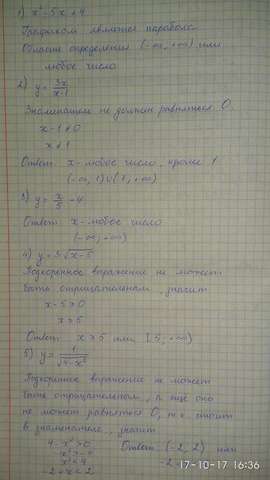 1) x² - 5x + 4
Графиком является парабола
Область определения (-∞, +∞) или
любое число
2) y = 3x/x-1
Знаменатель не должен равняться 0
x - 1 ≠ 0
x ≠ 1
Ответ: x - любое число, кроме 1
(-∞, 1) ∪ (1, +∞)
3) y = x/5 - 4
Ответ: x - любое число
(-∞, +∞)
4) y = 3√x-5
Подкоренное выражение не может
быть отрицательным, значит
x - 5 ≥ 0
x ≥ 5
Ответ: x ≥ 5 или [5, +∞)
5) y = 1/√4-x²
Подкоренное выражение не может
быть отрицательным, а ещё оно
не может равняться 0, т.к. стоит
в знаменателе, значит
4 - x² > 0
x² < 4
-2 < x < 2
Ответ: (-2, 2) или
-2
17-10-17 16:36